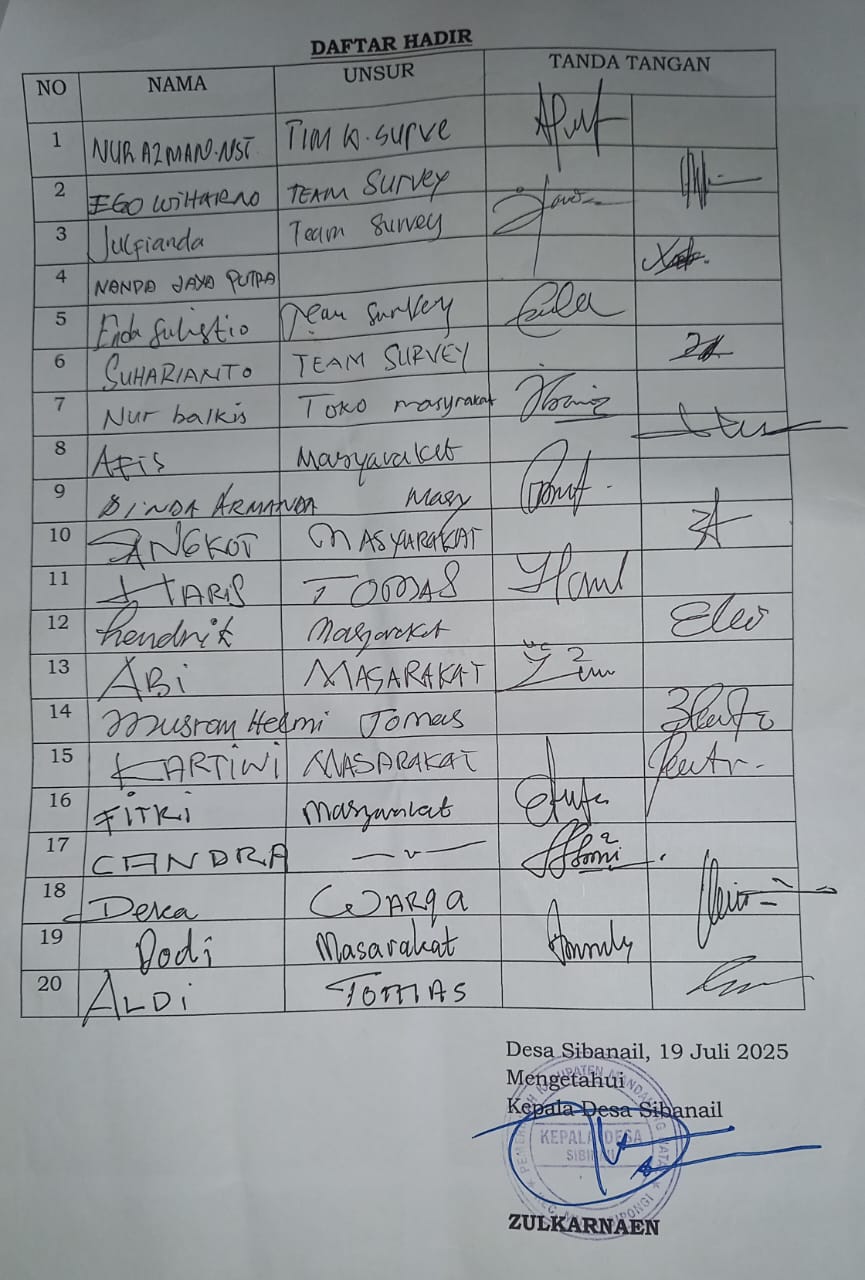 DAFTAR HADIR
NO NAMA UNSUR TANDA TANGAN
1 NUR AZMAN.NST TIM K.SURVE
2 EGO WIHARNO TEAM SURVEY
3 Julfianda Team Survey
4 NANDA JAYA PUTRA
5 Enda Sulistio Team Survey
6 SUHARIANTO TEAM SURVEY
7 Nur balkis Toko masyrakat
8 AFis Masyarakat
9 DINDA ARMANDA Masy
10 SANGKOT MASYARAKAT
11 HARIS TOMAS
12 hendrik Masyarakat
13 ABi MASARAKAT
14 Musram Helmi Tomas
15 KARTIWI MASARAKAT
16 FiTRi Masyarakat
17 CANDRA
18 Deka WARGA
19 Dodi Masarakat
20 ALDi TOMAS
Desa Sibanail, 19 Juli 2025
Mengetahui
Kepala Desa Sibanail
KEPALA DESA
ZULKARNAEN